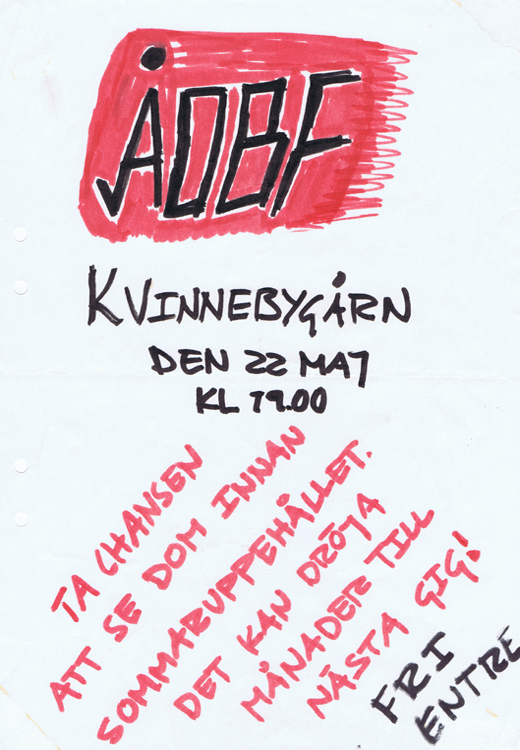 ÅOBF
KVINNEBYGÅRN
DEN 22 MAJ
KL 19.00
TA CHANSEN
ATT SE DOM INNAN
SOMMARUPPEHÅLLET.
DET KAN DRÖJA
MÅNADER TILL
NÄSTA GIG!
FRI
ENTRE